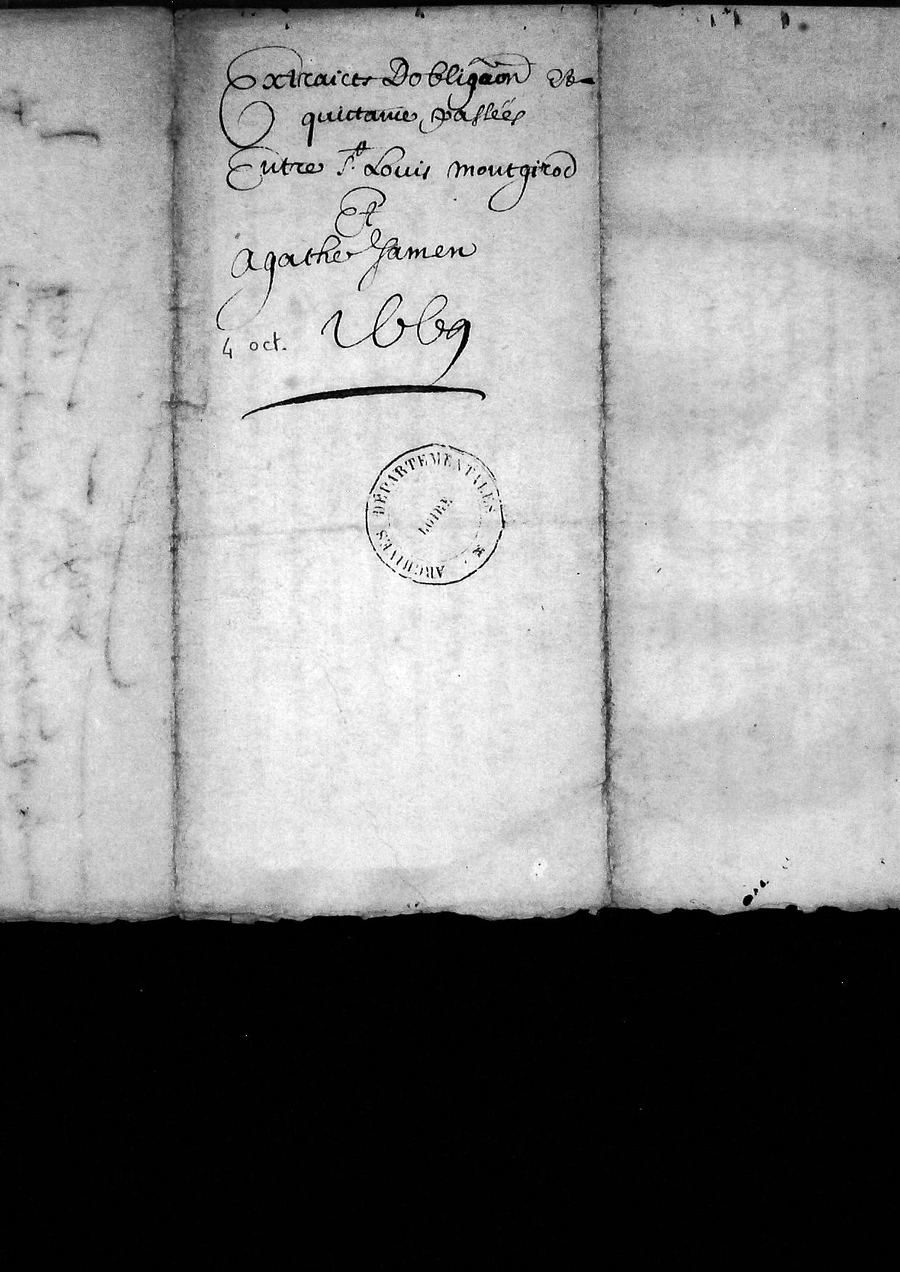 Extraicts Dobligaon et
quictance passées
Entre Sr. Louis Montgirod
Et
Agathe Jamen
4 oct. 1669
ARCHIVES DÉPARTEMENTALES
LOIRE